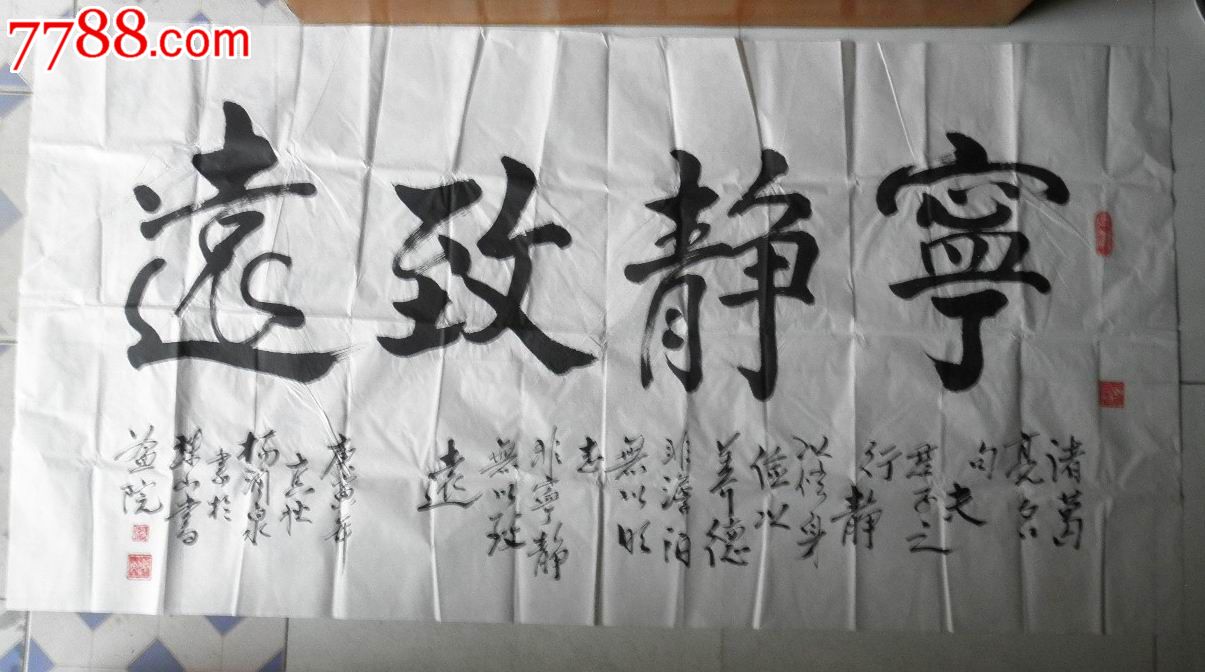 7788.com
寧靜致遠
諸葛
亮名
句夫
君子之
行靜
以修身
儉以
養德
非澹泊
無以明
志
非寧靜
無以致
遠
庚寅年
楊潤泉
書於
珠山書
畫院